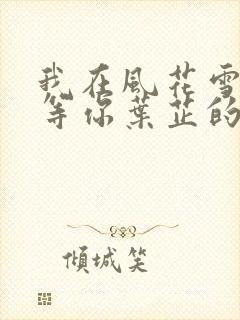 我在風花雪
等你葉芷的
傾城笑